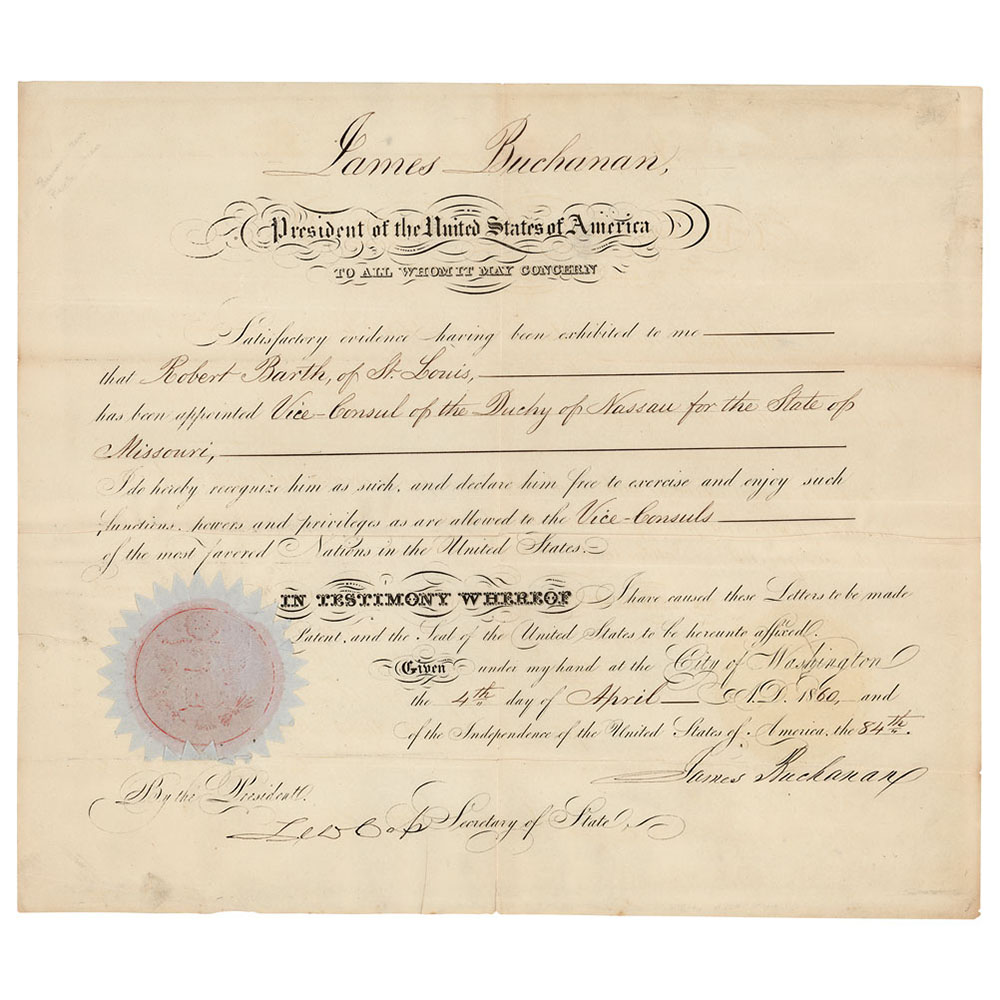 James Buchanan,
President of the United States of America
TO ALL WHOM IT MAY CONCERN
Satisfactory evidence having been exhibited to me
that Robert Barth, of St. Louis,
has been appointed Vice-Consul of the Duchy of Nassau for the State of
Missouri,
I do hereby recognize him as such, and declare him free to exercise and enjoy such
functions, powers and privileges as are allowed to the Vice-Consuls
of the most favored Nations in the United States.
IN TESTIMONY WHEREOF I have caused these Letters to be made
Patent, and the Seal of the United States to be hereunto affixed.
Given under my hand at the City of Washington
the 4th day of April A.D. 1860, and
of the Independence of the United States of America, the 84th.
James Buchanan
By the President.
Lew Cass Secretary of State.